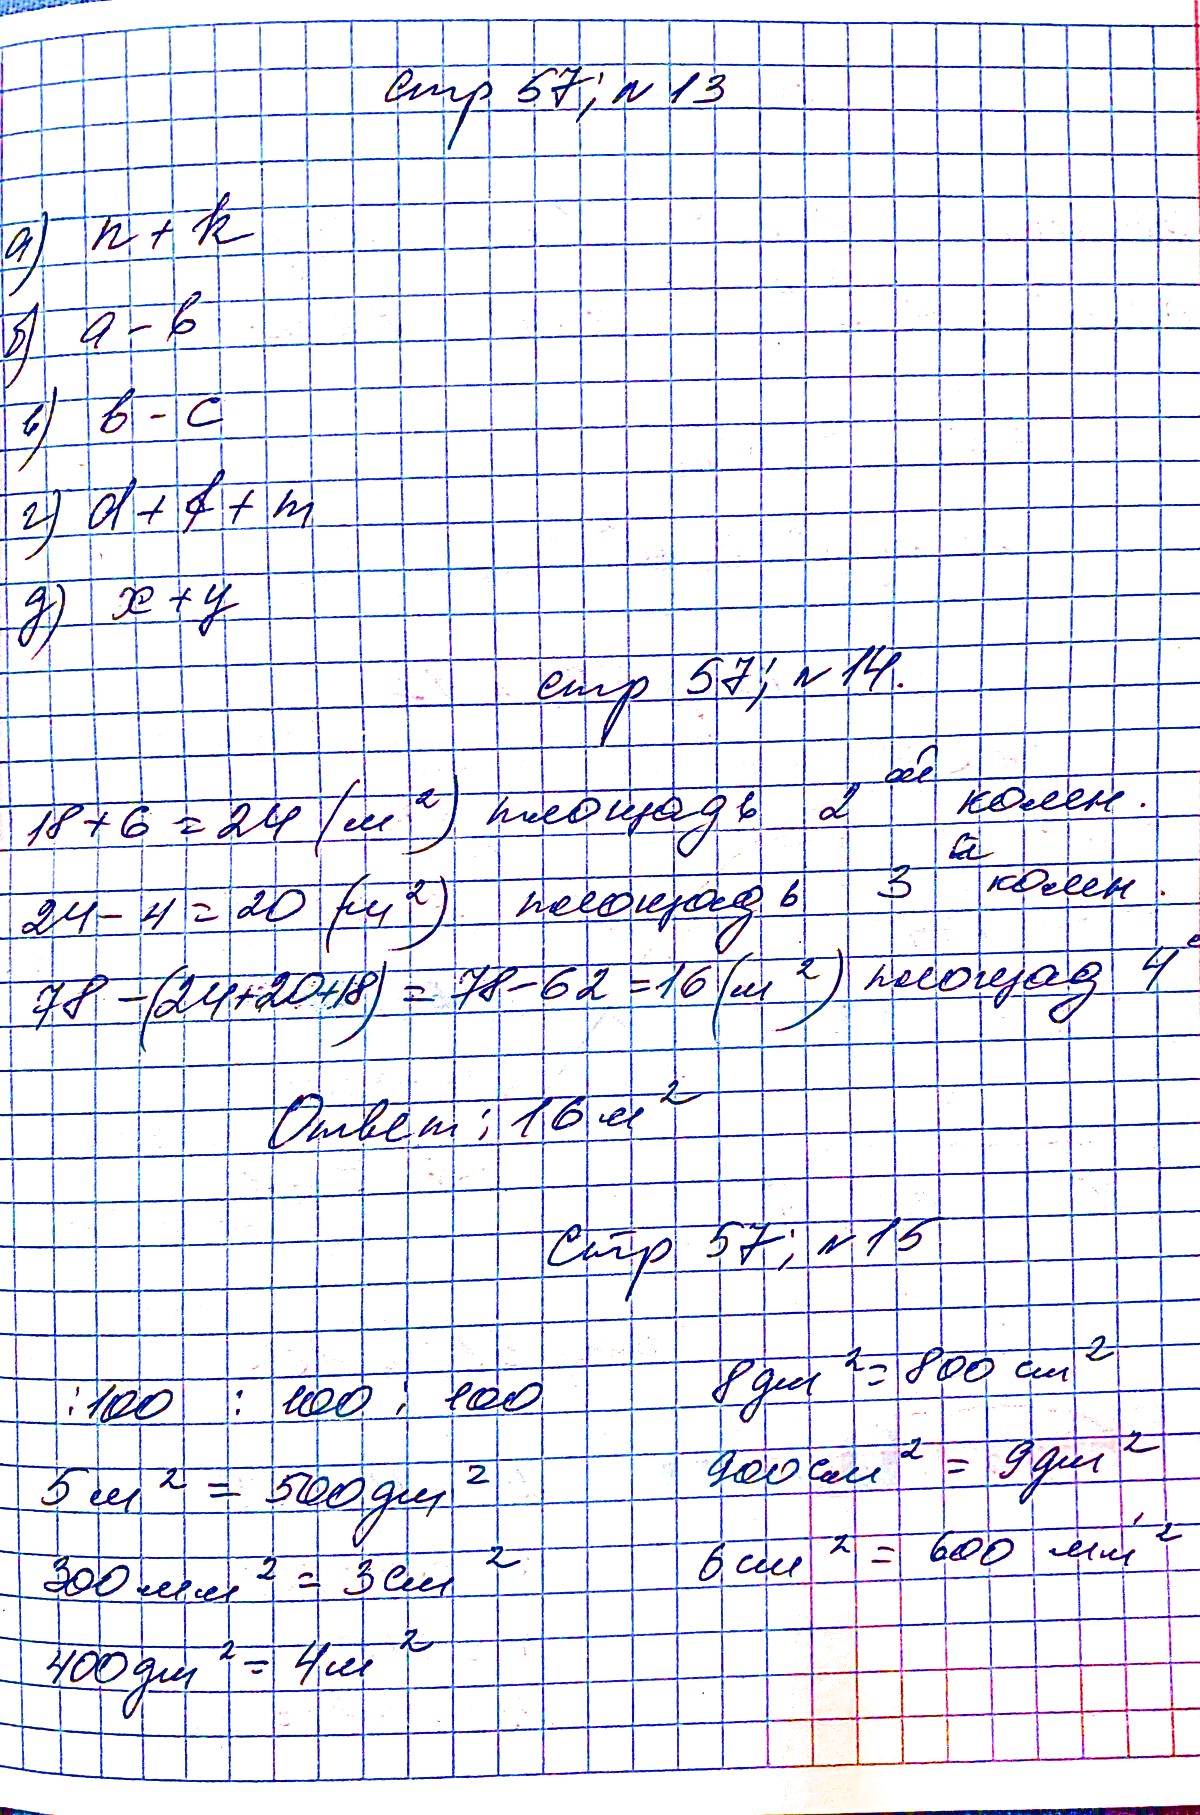 стр 57; № 13
а) n + k
б) a - b
в) b - c
г) d + k + m
д) x + y
стр 57; № 14.
18 + 6 = 24 (м²) площадь 2 ой комн.
24 - 4 = 20 (м²) площадь 3 й комн.
78 - (24+20+18) = 78 - 62 = 16 (м²) площад 4
Ответ: 16 м²
Стр 57; № 15
:100 : 100 : 100
5 м² = 500 дм²
300 мм² = 3 см²
400 дм² = 4 м²
8 дм² = 800 см²
900 см² = 9 дм²
6 см² = 600 мм²